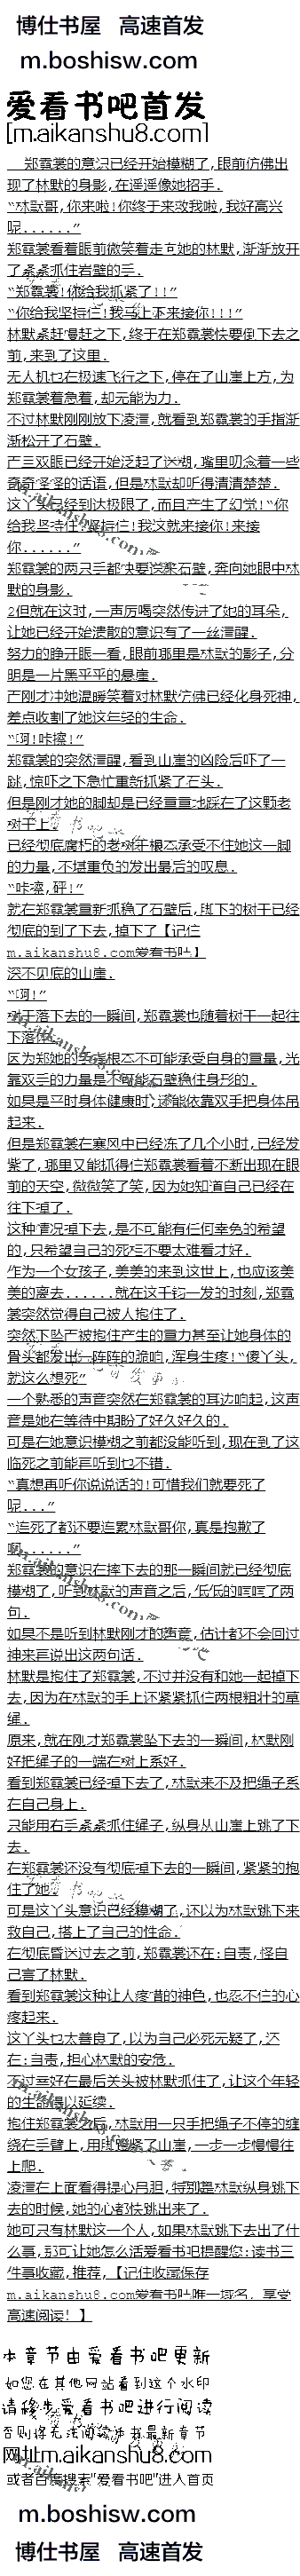 博仕书屋 高速首发
m.boshisw.com
爱看书吧首发
[m.aikanshu8.com]
郑霓裳的意识已经开始模糊了,眼前仿佛出
现了林默的身影,在遥遥像她招手.
“林默哥,你来啦!你终于来救我啦,我好高兴
呢......”
郑霓裳看着眼前微笑着走向她的林默,渐渐放开
了紧紧抓住岩壁的手.
“郑霓裳!你给我抓紧了!!”
“你给我坚持住!我马上下来接你!!!”
林默紧赶慢赶之下,终于在郑霓裳快要倒下去之
前,来到了这里.
无人机也在极速飞行之下,停在了山崖上方,为
郑霓裳着急着,却无能为力.
不过林默刚刚放下凌清,就看到郑霓裳的手指渐
渐松开了石壁.
而且双眼已经开始泛起了迷糊,嘴里叨念着一些
奇奇怪怪的话语,但是林默却听得清清楚楚.
这丫头已经到达极限了,而且产生了幻觉!“你
给我坚持住!坚持住!我这就来接你!来接
你......”
郑霓裳的两只手都快要读案石壁,奔向她眼中林
默的身影.
2但就在这时,一声厉喝突然传进了她的耳朵,
让她已经开始溃散的意识有了一丝清醒.
努力的睁开眼一看,眼前哪里是林默的影子,分
明是一片黑乎乎的悬崖.
而刚才冲她温暖笑着对林默仿佛已经化身死神,
差点收割了她这年轻的生命.
“啊!咔擦!”
郑霓裳的突然清醒,看到山崖的凶险后吓了一
跳,惊吓之下急忙重新抓紧了石头.
但是刚才她的脚却是已经重重地踩在了这颗老
树干上!
已经彻底腐朽的老树干根本承受不住她这一脚
的力量,不堪重负的发出最后的叹息.
“咔擦,砰!”
就在郑霓裳重新抓稳了石壁后,脚下的树干已经
彻底的到了下去,掉下了【记住
m.aikanshu8.com爱看书吧】
深不见底的山崖.
“啊!”
树干落下去的一瞬间,郑霓裳也随着树干一起往
下落体.
因为郑她的手臂根本不可能承受自身的重量,光
靠双手的力量是不可能石壁稳住身形的.
如果是平时身体健康时,还能依靠双手把身体吊
起来.
但是郑霓裳在寒风中已经冻了几个小时,已经发
紫了,哪里又能抓得住郑霓裳看着不断出现在眼
前的天空,微微笑了笑,因为她知道自己已经在
往下掉了.
这种情况掉下去,是不可能有任何幸免的希望
的,只希望自己的死相不要太难看才好.
作为一个女孩子,美美的来到这世上,也应该美
美的离去......就在这千钧一发的时刻,郑霓
裳突然觉得自己被人抱住了.
突然下坠而被抱住产生的重力甚至让她身体的
骨头都发出一阵阵的脆响,浑身生疼!“傻丫头,
就这么想死”
一个熟悉的声音突然在郑霓裳的耳边响起,这声
音是她在等待中期盼了好久好久的.
可是在她意识模糊之前都没能听到,现在到了这
临死之前能再听到也不错.
“真想再听你说说话的!可惜我们就要死了
呢...”
“连死了都还要连累林默哥你,真是抱歉了
啊......”
郑霓裳的意识在摔下去的那一瞬间就已经彻底
模糊了,听到林默的声音之后,低低的呵呵了两
句.
如果不是听到林默刚才的声音,估计都不会回过
神来再说出这两句话.
林默是抱住了郑霓裳,不过并没有和她一起掉下
去,因为在林默的手上还紧紧抓住两根粗壮的草
绳.
原来,就在刚才郑霓裳坠下去的一瞬间,林默刚
好把绳子的一端在树上系好.
看到郑霓裳已经掉下去了,林默来不及把绳子系
在自己身上.
只能用右手紧紧抓住绳子,纵身从山崖上跳了下
去.
在郑霓裳还没有彻底掉下去的一瞬间,紧紧的抱
住了她!
可是这丫头意识已经模糊了,还以为林默跳下来
救自己,搭上了自己的性命.
在彻底昏迷过去之前,郑霓裳还在:自责,怪自
己害了林默.
看到郑霓裳这种让人疼惜的神色,也忍不住的心
疼起来.
这丫头也太善良了,以为自己必死无疑了,还
在:自责,担心林默的安危.
不过幸好在最后关头被林默抓住了,让这个年轻
的生命得以延续.
抱住郑霓裳之后,林默用一只手把绳子不停的缠
绕在手臂上,用脚蹬紧了山崖,一步一步慢慢往
上爬.
凌清在上面看得提心吊胆,特别是林默纵身跳下
去的时候,她的心都快跳出来了.
她可只有林默这一个人,如果林默跳下去出了什
么事,那可让她怎么活爱看书吧提醒您:读书三
件事收藏,推荐,【记住收藏保存
m.aikanshu8.com爱看书吧唯一域名, 享受
高速阅读! 】
本章节由爱看书吧更新
如您在其他网站看到这个水印
请移步爱看书吧进行阅读
否则将无法阅读本书最新章节
网址m.aikanshu8.com
或者百度搜索“爱看书吧”进入首页
m.boshisw.com
博仕书屋 高速首发